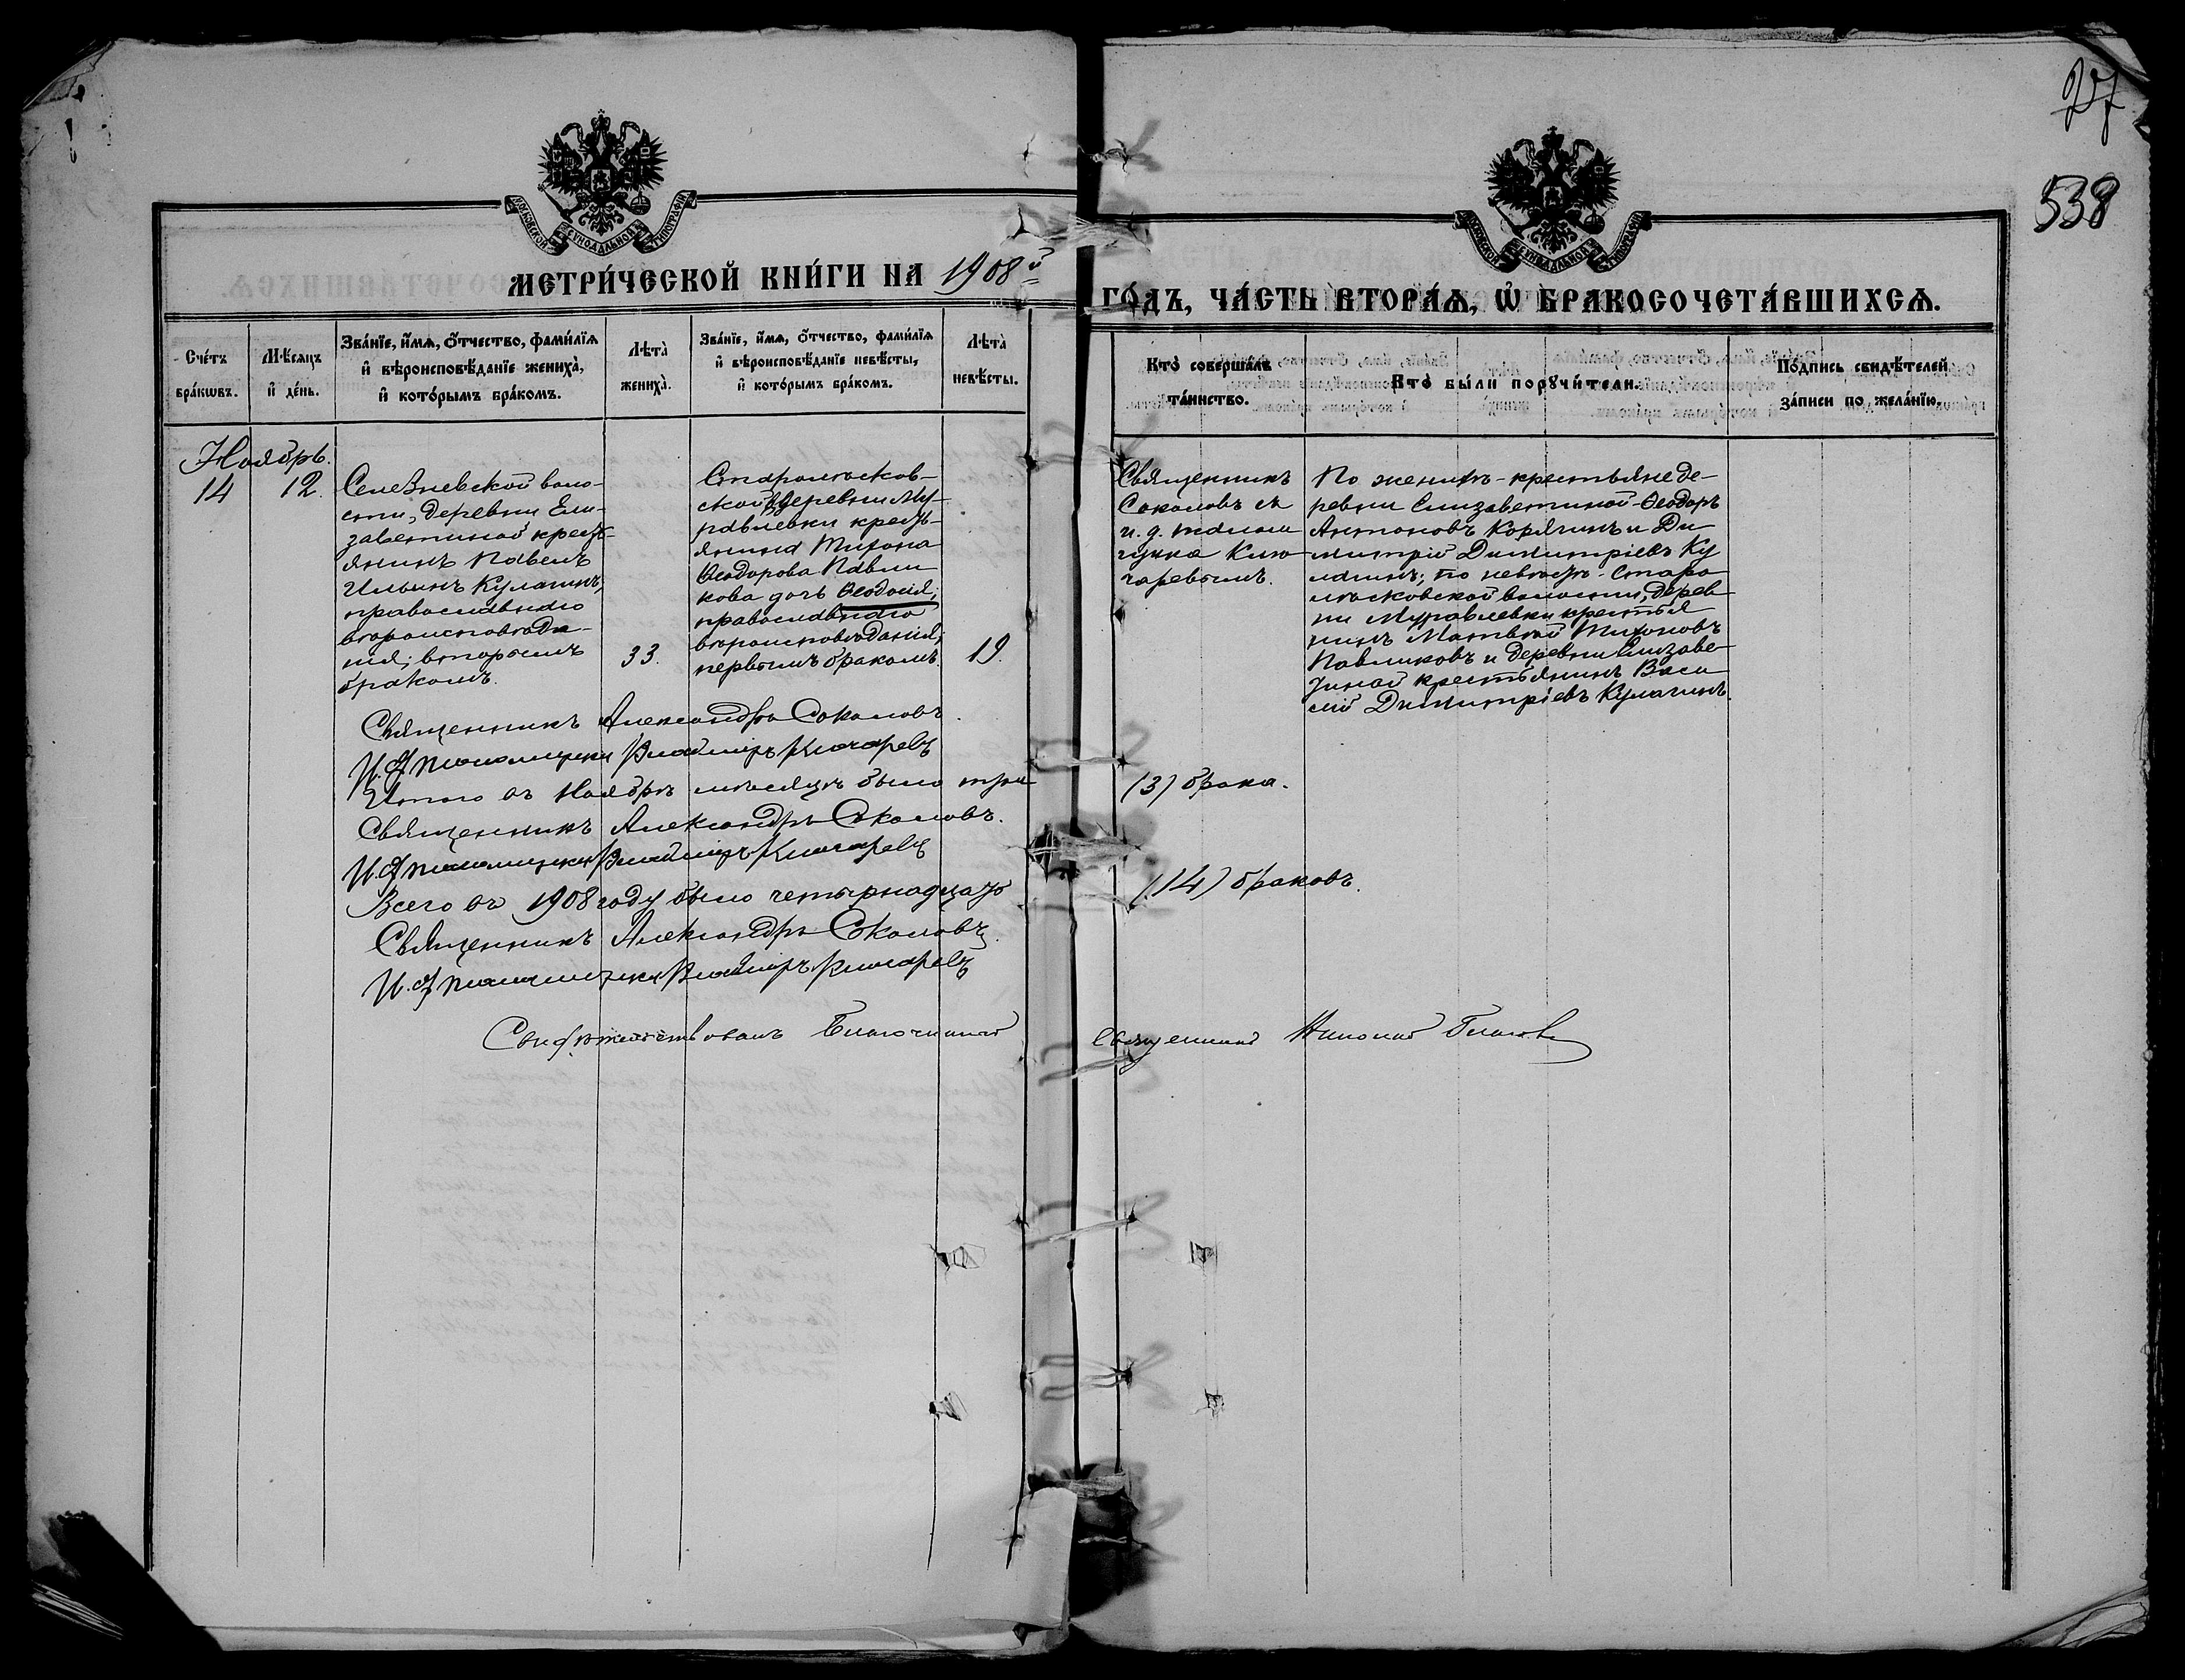 27
538
МОСКОВСКОЙ СѴНОДАЛЬНОЙ ТИПОГРАФІИ
МОСКОВСКОЙ СѴНОДАЛЬНОЙ ТИПОГРАФІИ
МЕТРИ́ЧЕСКОЙ КНИ́ГИ НА 1908й
ГО́ДЪ, ЧА́СТЬ ВТОРА́Ѧ, Ѡ҆ БРАКОСОЧЕТА́ВШИХСѦ.
Сче́тъ
бра́кѡвъ.
Мѣ́сѧцъ
и҆ де́нь.
Зва́нїе, и҆́мѧ, ѻ҆́тчество, фами́лїѧ
и҆ вѣроисповѣ́данїе жениха̀,
и҆ кото́рымъ бра́комъ.
Лѣ́та̀
жениха̀.
Зва́нїе, и҆́мѧ, ѻ҆́тчество, фами́лїѧ
и҆ вѣроисповѣ́данїе невѣ́сты,
и҆ кото́рымъ бра́комъ.
Лѣ́та̀
невѣ́сты.
Кто̀ соверша́лъ
та́инство.
Кто̀ бы́ли порꙋчи́тели.
По́дпись свидѣ́телей
за́писи по жела́нїю.
Ноябрь.
14
12.
Селезневской воло-
сти, деревни Ели-
заветиной крест-
янинъ Павелъ
Ильинъ Кулагинъ,
православнаго
вѣроисповѣда-
нія; вторымъ
бракомъ.
33.
Старолѣсков-
ской деревни Му-
равлевки кресть-
янина Тихона
Ѳеодорова Павли
кова дочь Ѳеодосія;
православнаго
вѣроисповѣданія,
первымъ бракомъ.
19.
Священникъ
Соколовъ съ
и. д. псалом
щика Клю
чаревымъ.
По женихѣ - крестьяне де-
ревни Елизаветиной - Ѳеодоръ
Антоновъ Корягинъ и Ди
митрій Димитріевъ Ку
лагинъ; по невѣстѣ - Старо
лѣсковской волости, дерев
ни Муравлевки крестья
нинъ Матвей Тихоновъ
Павликовъ и деревни Елизаве-
тиной крестьянинъ Васи
лій Димитріевъ Кулагинъ.
Священникъ Александръ Соколовъ.
И.д. псаломщика Владиміръ Ключаревъ
Итого въ Ноябрѣ мѣсяцѣ было три (3) брака.
Священникъ Александръ Соколовъ.
И.д. псаломщика Владиміръ Ключаревъ
Всего въ 1908 году было четырнадцать (14) браковъ.
Священникъ Александръ Соколовъ.
И.д. псаломщика Владиміръ Ключаревъ
Свидѣтельствовалъ Благочинный Священникъ Николай